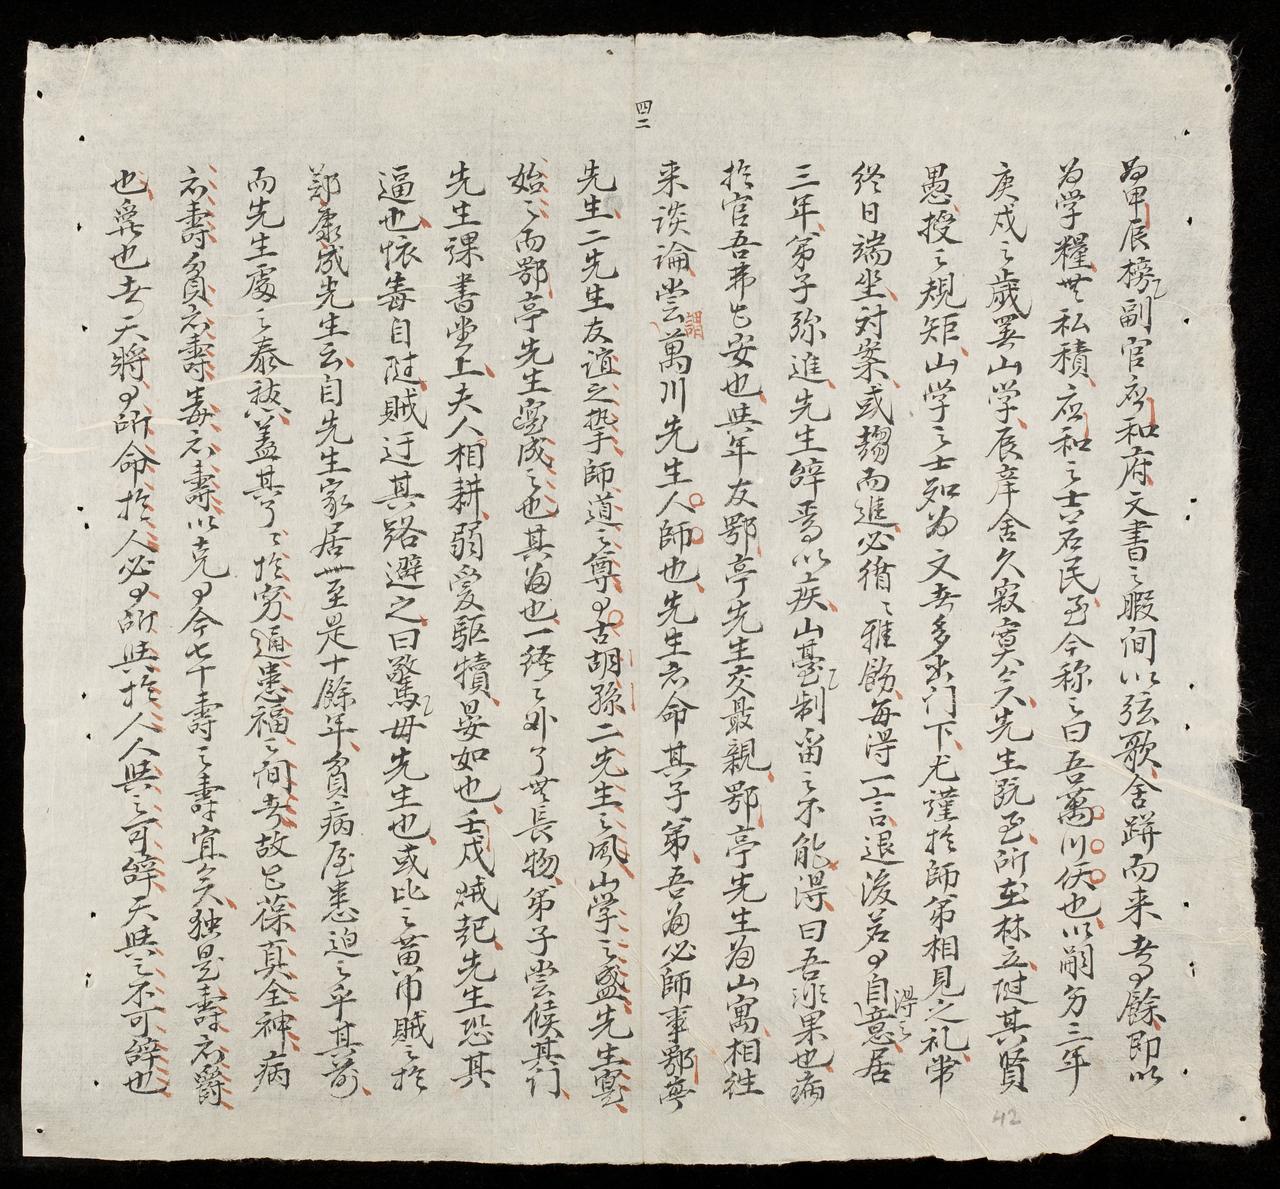 四二
為甲辰榜副官應和府文書之暇間以弦歌舍跰而来者有餘即以
為学糧無私積应和之士若民至今称之曰吾萬川佚也以嗣艻三年
庚戌之歲罢山学辰庠舍久寂寞矣先生既至所在林立陡其賢
愚授之規矩山学之士知為文者多出门下尤謹於師第相見之礼常
終日端坐对案或趨而進必循〻雅飭每得一言退後若有自得之意居
三年第子弥進先生辞焉以疾山臺制留之不能得曰吾非果也病
於官吾弗㠯安也與年友鄂亭先生交最親鄂亭先生為山寓相往
来談論尝謂萬川先生人師也先生亦命其子第吾為必師事鄂亭
先生二先生友谊之挚師道之尊有古胡孫二先生之風山学之盛先生寔
始之而鄂亭先生寔成之也其為也一経之外了無長物第子尝候其门
先生課書堂上夫人相耕弱爱驱犢晏如也壬戌贼起先生恐其
逼也怀毒自陡贼迂其路避之曰敬驚毋先生也或比之黄巾贼之於
鄭康成先生云自先生家居至是十餘年貧病屋患迫之乎其前
而先生處之泰然盖其了〻於穷通患福之间者故㠯葆真全神病
不壽貧不壽毒不壽以克有今七十壽之壽宜矣独是壽不爵
也爵也者天將有所命於人必有所與於人人與之可辞天與之不可辞也
42